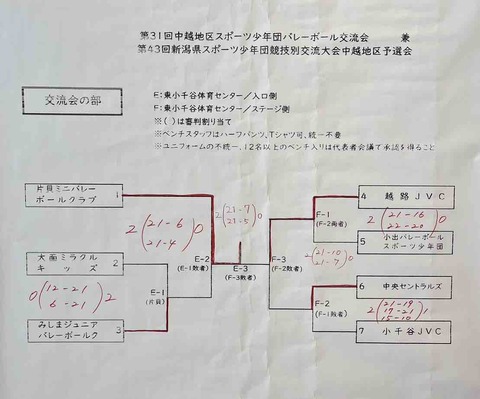 第31回中越地区スポーツ少年団バレーボール交流会　兼
第43回新潟県スポーツ少年団競技別交流大会中越地区予選会
交流会の部
E：東小千谷体育センター／入口側
F：東小千谷体育センター／ステージ側
※（ ）は審判割り当て
※ベンチスタッフはハーフパンツ、Tシャツ可、統一不要
※ユニフォームの不統一、12名以上のベンチ入りは代表者会議で承認を得ること
片貝ミニバレー
ボールクラブ
1
2（21-6
21-4）0
大面ミラクル
キッズ
2
0（12-21
6-21）2
みしまジュニア
バレーボールク
3
E-1
（片貝）
E-2
（E-1敗者）
2（21-7
21-5）0
E-3
（F-3敗者）
F-3
（F-2敗者）
2（21-10
21-7）0
F-1
（F-2両者）
F-2
（F-1敗者）
4 越路JVC
2（21-16
22-20）0
5 小出バレーボール
スポーツ少年団
6 中央セントラルズ
2（21-19
19-21
15-10）1
7 小千谷JVC